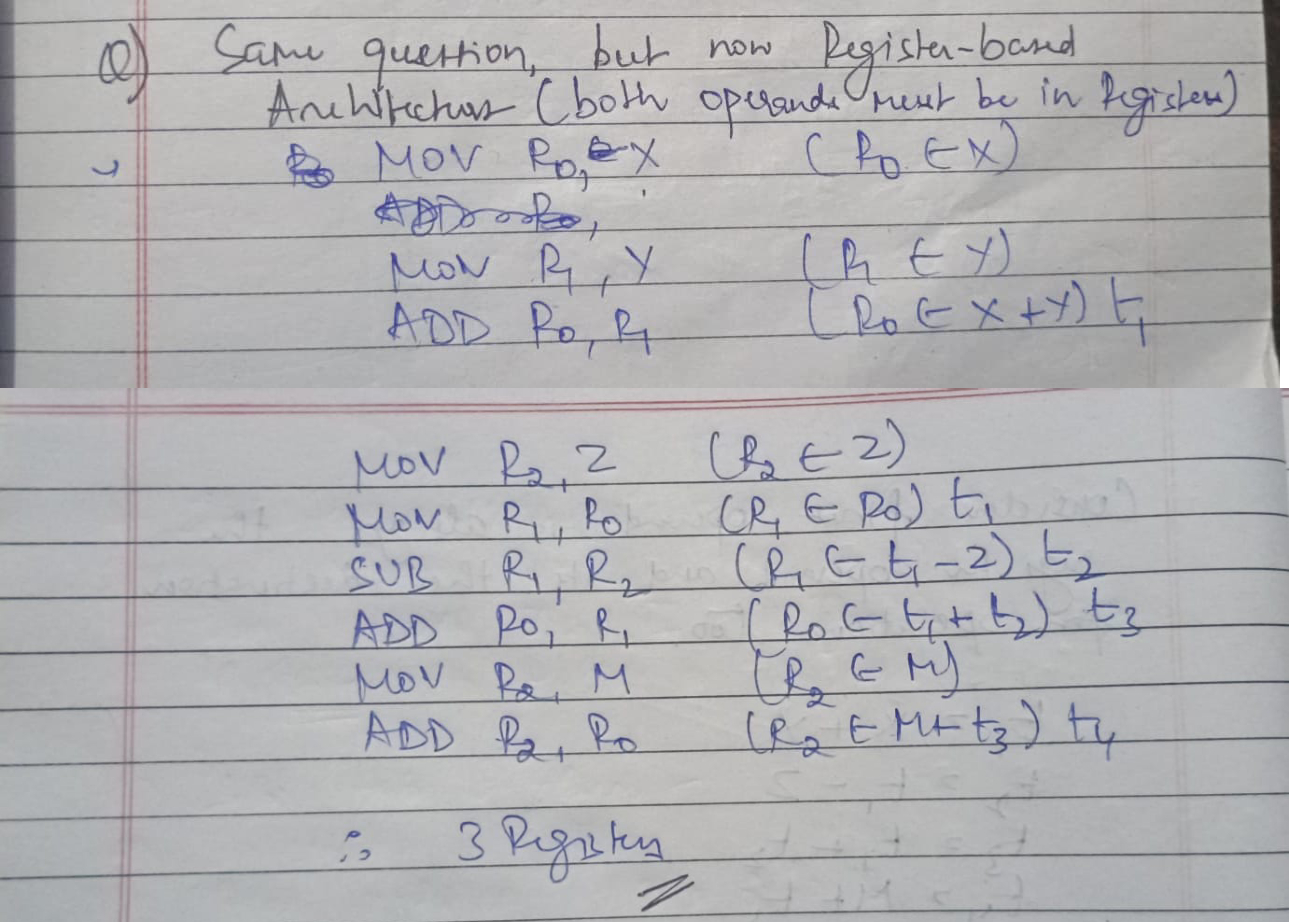 Q) Same question, but now Register-based
Architecture (both operands must be in Registers)
MOV R0, X (R0 ← X)
MOV R1, Y (R1 ← Y)
ADD R0, R1 (R0 ← X + Y) t1
MOV R2, Z (R2 ← Z)
MOV R1, R0 (R1 ← R0) t1
SUB R1, R2 (R1 ← t1 - Z) t2
ADD R0, R1 (R0 ← t1 + t2) t3
MOV R2, M (R2 ← M)
ADD R2, R0 (R2 ← M + t3) t4
∴ 3 Registers